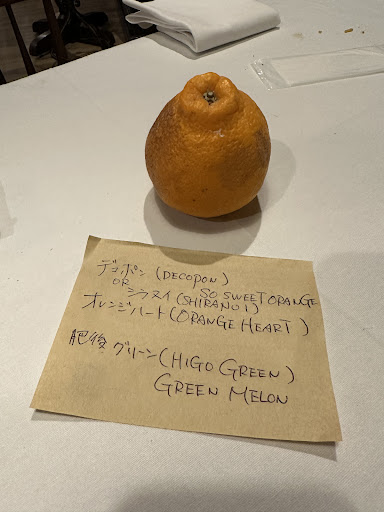 デコポン (DECOPON)
OR SO SWEET ORANGE
シラヌイ (SHIRANOI)
オレンジハート (ORANGE HEART)
肥後グリーン (HIGO GREEN)
GREEN MELON